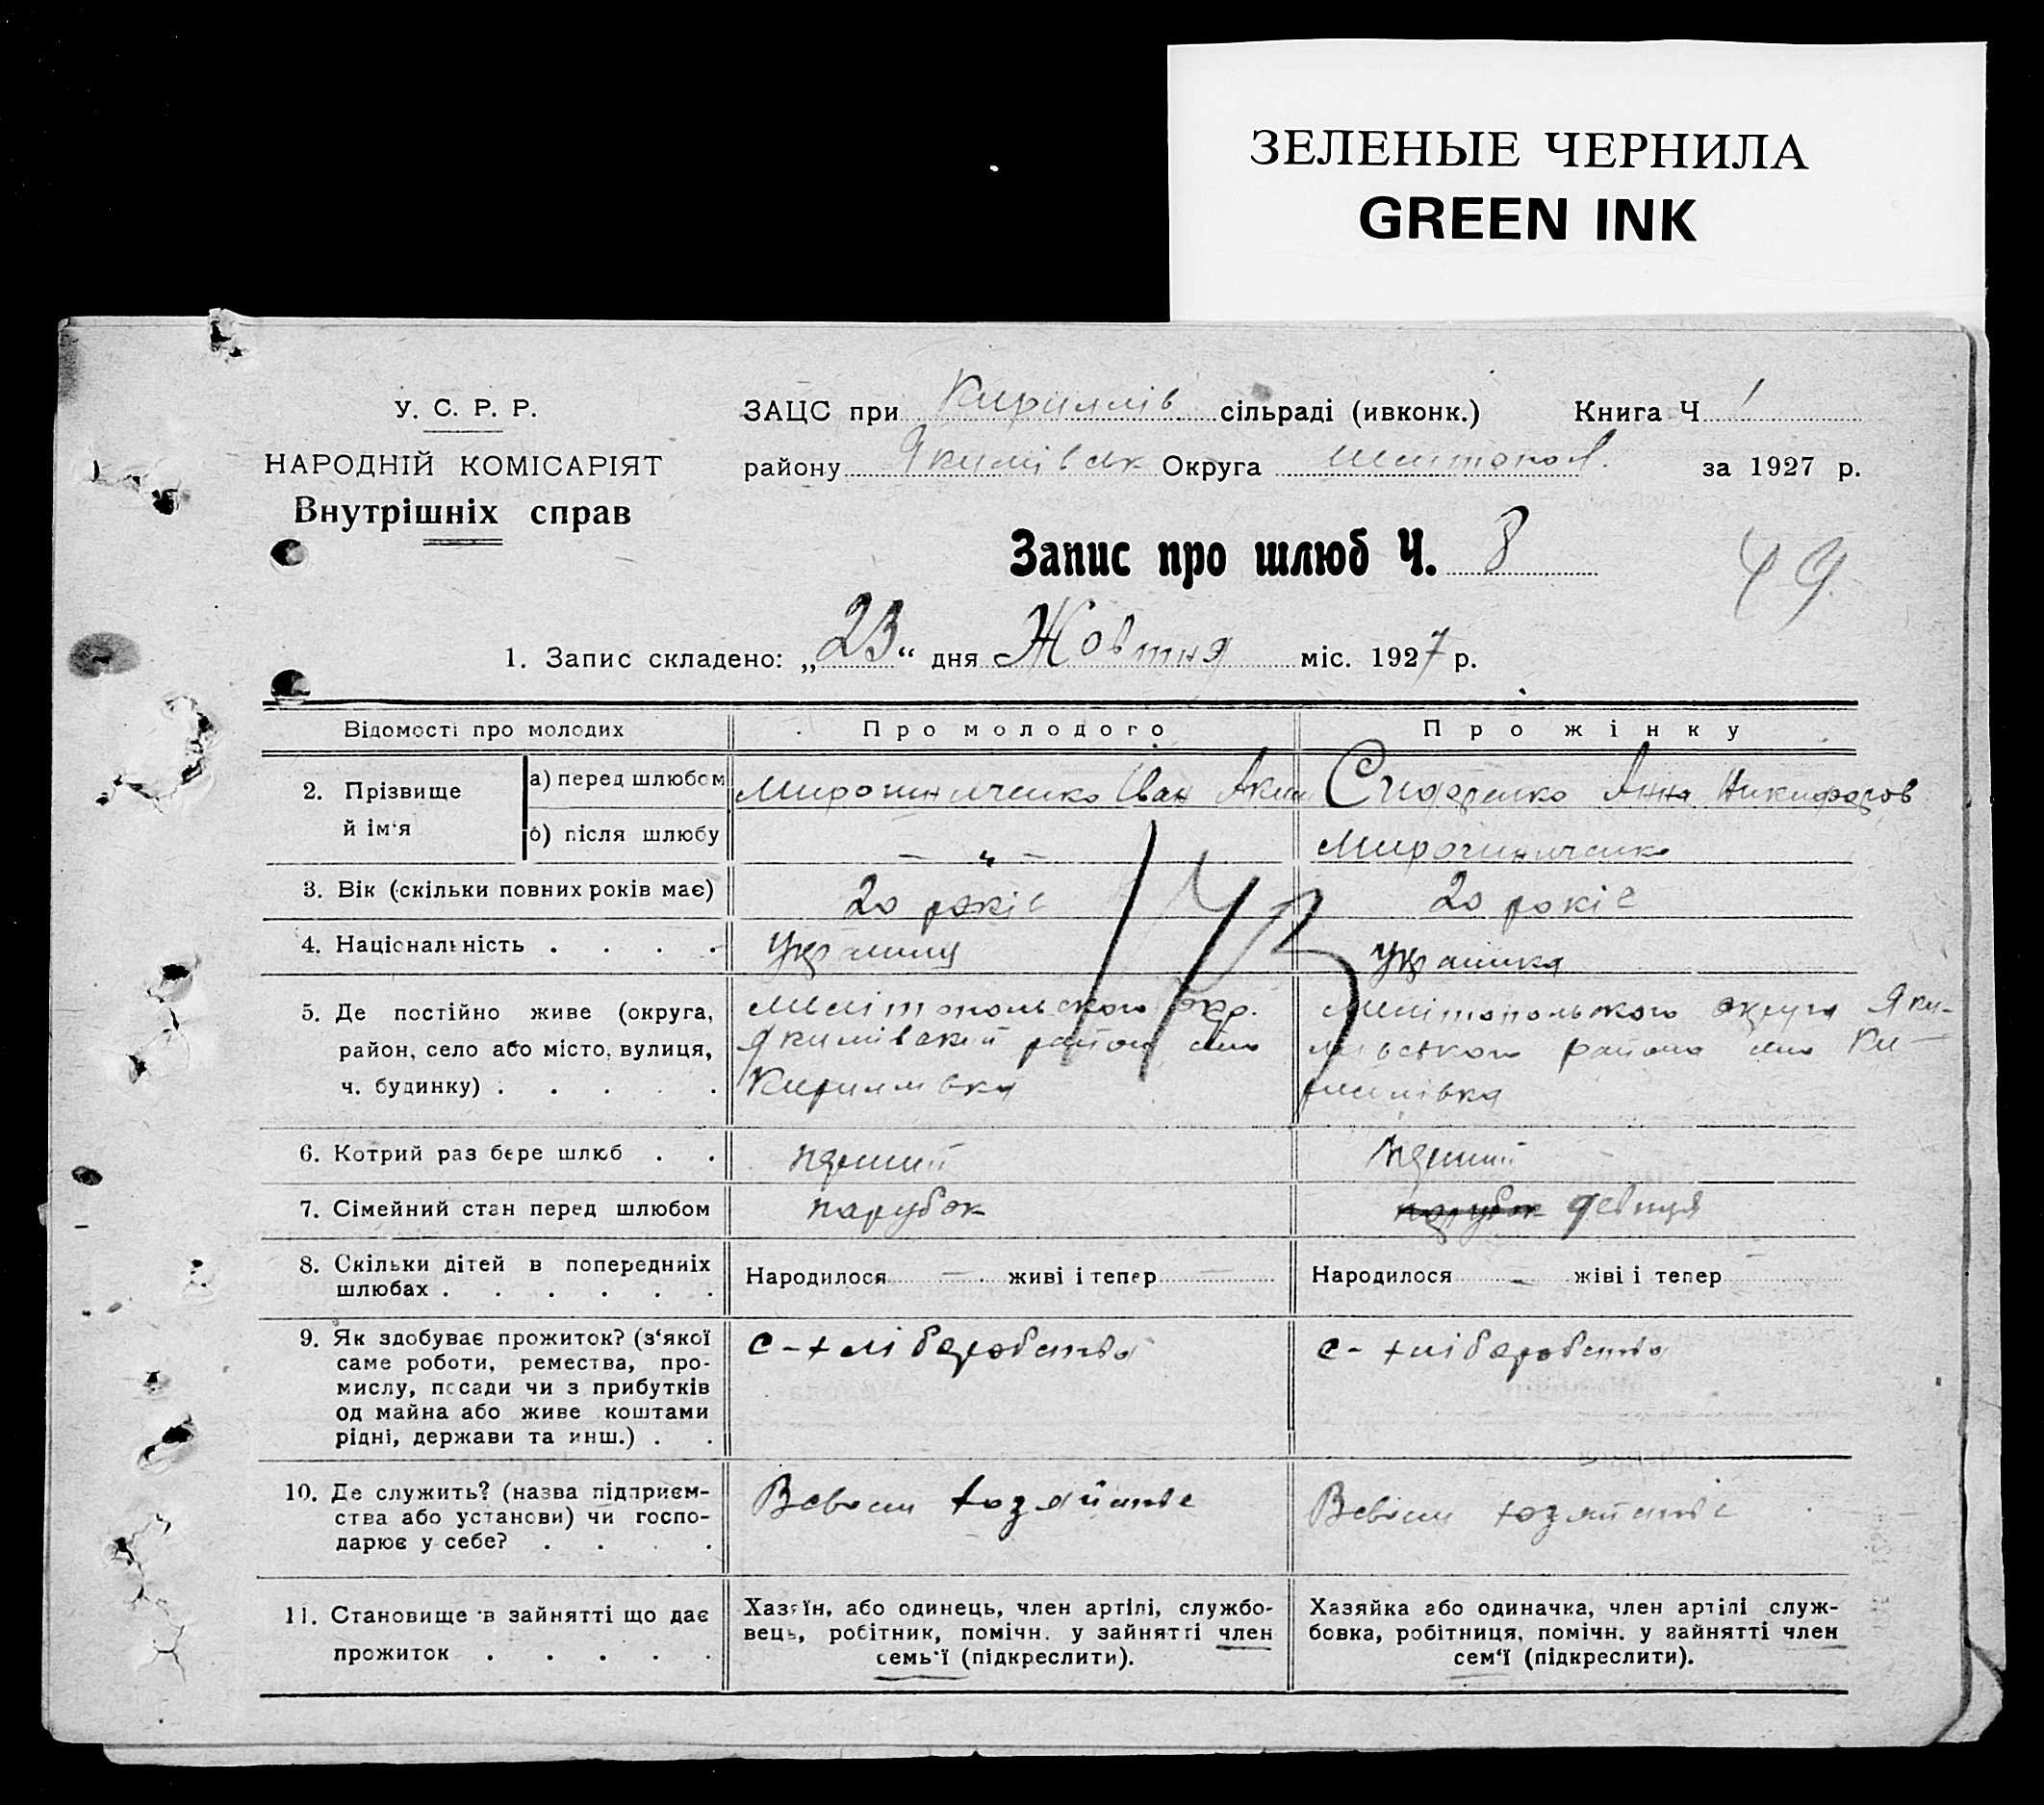 ЗЕЛЕНЫЕ ЧЕРНИЛА
GREEN INK
У. С. Р. Р.
НАРОДНІЙ КОМІСАРІЯТ
Внутрішніх справ
ЗАЦС при Кириллів сільраді (ивконк.) Книга Ч 1
району Якимівськ Округа Мелітопол. за 1927 р.
Запис про шлюб Ч. 8
49
1. Запис складено: „23“ дня Жовтня міс. 1927 р.
Відомості про молодих Про молодого Про жінку
2. Прізвище й ім‘я
а) перед шлюбом Мирошниченко Іван Аким Сидоренко Анна Никифоров
б) після шлюбу — „ — Мирошниченко
143
3. Вік (скільки повних років має) 20 років 20 років
4. Національність . . . . Українц Українка
5. Де постійно живе (округа,
район, село або місто, вулиця,
ч. будинку) . . . . .
Мелітопольского окр.
Якимівский район село
Кирилівка
Мелітопольского округа Яки-
мівського района село Ки-
рилівка
6. Котрий раз бере шлюб . . перший перший
7. Сімейний стан перед шлюбом парубок парубок девиця
8. Скільки дітей в попередниіх
шлюбах . . . . . .
Народилося — живі і тепер — Народилося — жіві і тепер
9. Як здобуває прожиток? (з‘якої
саме роботи, ремества, про-
мислу, посади чи з прибутків
од майна або живе коштами
рідні, держави та инш.) . .
с-хліборобство
с-хліборобство
10. Де служить? (назва підприєм-
ства або установи) чи госпо-
дарює у себе? . . . .
Всвоем хозяйстве
Всвоем хозяйстве
11. Становище в зайнятті що дає
прожиток . . . . .
Хазяїн, або одинець, член артілі, службо-
вець, робітник, помічн. у зайнятті член
семь‘ї (підкреслити).
Хазяйка або одиначка, член артілі служ-
бовка, робітниця, помічн. у зайнятті член
сем‘ї (підкреслити).